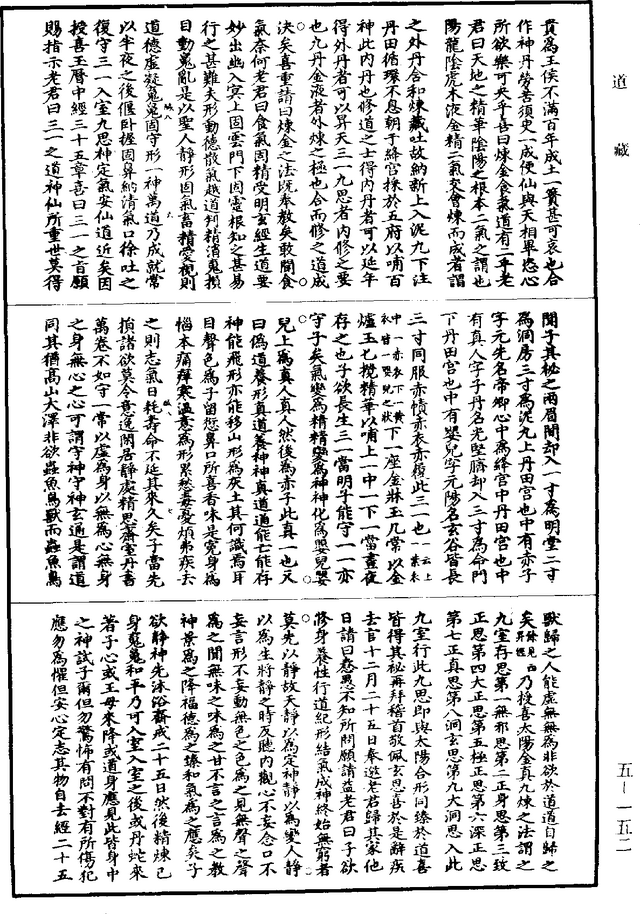 道藏
貴為王侯不滿百年成土一簣甚可哀也合
作神丹勞苦須臾一成便仙與天相畢恣心
所欲樂可央乎喜曰煉金食氣道有二乎老
君曰天地之精華陰陽之根本二氣之謂也
陽龍陰虎木液金精二氣交會煉而成者謂
之外丹合和煉藏吐故納新上入泥丸下注
丹田循環不息朝于絳宮採於五府以哺百
神此內丹也修道之士得內丹者可以延年
得外丹者可以昇天三一九思者內修之要
也九丹金液者外煉之極也合而修之道成
決矣喜重請曰煉金之法既奉教矣敢聞食
氣奈何老君曰食氣固精受明玄經生道要
妙出幽入冥上固雲門下固靈根知之甚易
行之甚難夫形動德散氣越道判精消鬼損
目動䰟亂是以聖人靜形固氣畜精愛視則
道德虛凝䰟鬼固守形一神萬道乃成就常
以半夜之後偃卧握固算納清氣口徐吐之
復守三一入室九思神定氣安仙道近矣因
授喜玉曆中經三十五章喜曰三一之旨願
賜指示老君曰三一之道神仙所重世莫得
聞子其秘之兩眉間却入一寸為明堂二寸
為洞房三寸為泥丸上丹田宮也中有赤子
字元先名帝卿心中為絳宮中丹田宮也中
有真人字子丹名光堅臍却入三寸為命門
下丹田宮也中有嬰兒字元陽名玄谷皆長
三寸同服赤幘赤衣赤履此三一也一云上紫衣
中一赤衣下一黃衣皆一嬰兒之狀下一座金牀玉几常以金
爐玉匕攬精華以哺上一中一下一當晝夜
存之也子欲長生三一當明子能守一一亦
守子矣氣變為精精變為神神化為嬰兒嬰
兒上為真人真人然後為赤子此真一也又
曰偽道養形真道養神神真道道能亡能存
神能飛形亦能移山形為灰土其何識焉耳
目聲色為子留愆鼻口所喜香味是冤身為
惱本痛痒寒溫意為形累愁毒憂煩弗疾去
之則志氣日耗壽命不延其來久矣子當先
損諸欲莫令意逸閑居靜處精思齋室丹書
萬卷不如守一常以虛為身以無為心無身
之身無心之心可謂守神守神玄通是謂道
同其猶高山大澤非欲蟲魚鳥獸而蟲魚鳥
獸歸之人能虛無無為非欲於道道自歸之
矣餘見西昇經乃授喜太陽金真九煉之法謂之
九室存思第一無邪思第二正身思第三致
正思第四大正思第五極正思第六深正思
第七正真思第八洞玄思第九大洞思入此
九室行此九思即與太陽合形同臻於道喜
皆得其祕再拜稽首敬佩玄恩喜於是辭疾
去官十二月二十五日奉邀老君歸其家他
日請曰愚不知所問願請益老君曰子欲
修身養性行道紀形結氣成神終始無窮者
莫先以靜故天靜以為定神靜以為變人靜
以為生將靜之時反聽內觀心不妄念口不
妄言形不妄動無色之色為之見無聲之聲
為之聞無味之味為之甘不言之言為之教
神景為之降福德為之臻和氣為之應矣子
欲靜神先沐浴齋戒二十五日然後精煉已
身䰟鬼和平乃可入室入室之後或丹蛇來
著子心或王母來降或道身應見此皆身中
之神試子爾但勿驚怖有問不對有所傷犯
應勿為懼但安心定志其物自去經二十五
五-一五二